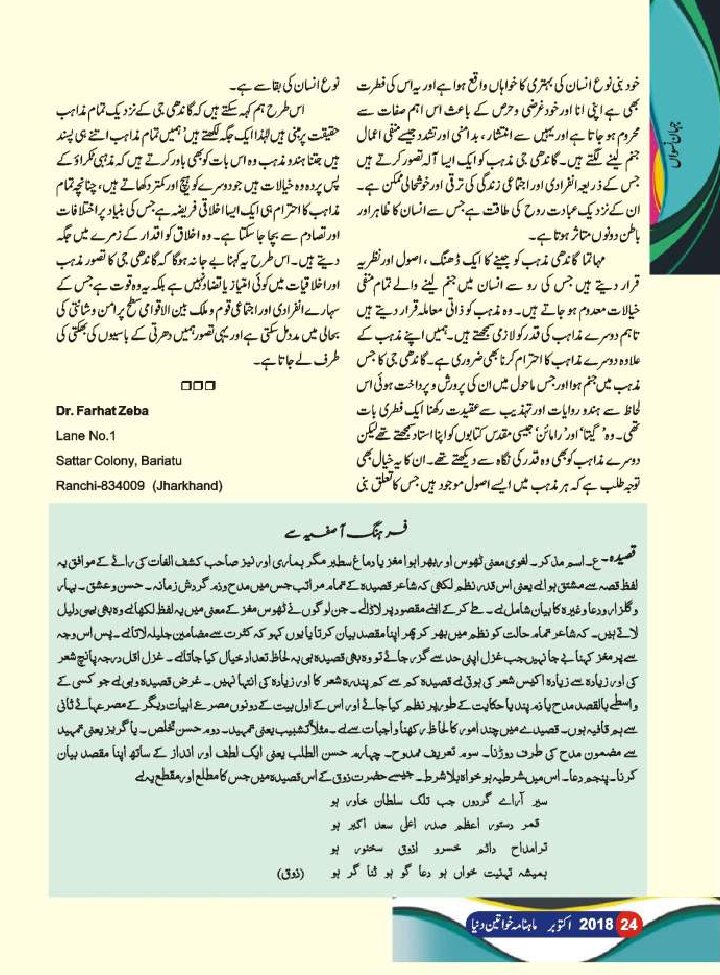 جہان نسواں
خود بنی نوع انسان کی بہتری کا خواہاں واقع ہوا ہے اور یہ اس کی فطرت
بھی ہے اپنی انا اور خود غرضی و حرص کے باعث اس اہم صفات سے
محروم ہو جاتا ہے اور یہیں سے انتشار، بدامنی اور تشدد جیسے منفی اعمال
جنم لینے لگتے ہیں۔ گاندھی جی مذہب کو ایک ایسا آلہ تصور کرتے ہیں
جس کے ذریعہ انفرادی اور اجتماعی زندگی کی ترقی اور خوشحالی ممکن ہے۔
ان کے نزدیک عبادت روح کی طاقت ہے جس سے انسان کا ظاہر اور
باطن دونوں متاثر ہوتا ہے۔
مہاتما گاندھی مذہب کو جینے کا ایک ڈھنگ، اصول اور نظریہ
قرار دیتے ہیں جس کی رو سے انسان میں جنم لینے والے تمام منفی
خیالات معدوم ہو جاتے ہیں۔ وہ مذہب کو ذاتی معاملہ قرار دیتے ہیں
تاہم دوسرے مذاہب کی قدر کو لازمی سمجھتے ہیں۔ ہمیں اپنے مذہب کے
علاوہ دوسرے مذاہب کا احترام کرنا بھی ضروری ہے۔ گاندھی جی کا جس
مذہب میں جنم ہوا اور جس ماحول میں ان کی پرورش و پرداخت ہوئی اس
لحاظ سے ہندو روایات اور تہذیب سے عقیدت رکھنا ایک فطری بات
تھی۔ وہ ’گیتا‘ اور ’رامائن‘ جیسی مقدس کتابوں کو اپنا استاد سمجھتے تھے لیکن
دوسرے مذاہب کو بھی وہ قدر کی نگاہ سے دیکھتے تھے۔ ان کا یہ خیال بھی
توجہ طلب ہے کہ ہر مذہب میں ایسے اصول موجود ہیں جس کا تعلق بنی
نوع انسان کی بقا سے ہے۔
اس طرح ہم کہہ سکتے ہیں کہ گاندھی جی کے نزدیک تمام مذاہب
حقیقت پر مبنی ہیں لہٰذا ایک جگہ لکھتے ہیں ’ہمیں تمام مذاہب اتنے ہی پسند
ہیں جتنا ہندو مذہب وہ اس بات کو بھی باور کرتے ہیں کہ مذہبی ٹکراؤ کے
پس پردہ وہ خیالات ہیں جو دوسرے کو ہیچ اور کمتر دکھاتے ہیں، چنانچہ تمام
مذاہب کا احترام ہی ایک ایسا اخلاقی فریضہ ہے جس کی بنیاد پر اختلافات
اور تصادم سے بچا جا سکتا ہے۔ وہ اخلاق کو اقدار کے زمرے میں جگہ
دیتے ہیں۔ اس طرح یہ کہنا بے جا نہ ہوگا کہ گاندھی جی کا تصور مذہب
اور اخلاقیات میں کوئی امتیاز یا تضاد نہیں ہے بلکہ یہ وہ قوت ہے جس کے
سہارے انفرادی اور اجتماعی قوم و ملک بین الاقوامی سطح پر امن و شانتی کی
بحالی میں مدد مل سکتی ہے اور یہی تصور ہمیں دھرتی کے باسیوں کی بھگتی کی
طرف لے جاتا ہے۔
Dr. Farhat Zeba
Lane No.1
Sattar Colony, Bariatu
Ranchi-834009 (Jharkhand)
فرہنگ آصفیہ سے
قصیدہ۔ ع۔ اسم مذکر۔ لغوی معنی ٹھوس اور بھرا ہوا مغز یا دماغ سطبر مگر ہماری اور نیز صاحب کشف الغات کی رائے کے موافق یہ
لفظ قصہ سے مشتق ہوا ہے یعنی اس قدر نظم لکھنی کہ شاعر قصیدہ کے تمام مراتب جس میں مدح و ذم گردش زمانہ۔ حسن و عشق۔ بہار
و گلزار و دعا وغیرہ کا بیان شامل ہے۔ طے کر کے اپنے مقصود پر لا ڈالے۔ جن لوگوں نے ٹھوس مغز کے معنی میں یہ لفظ لکھا ہے وہ بھی یہی دلیل
لاتے ہیں۔ کہ شاعر تمام حالت کو نظم میں بھر کر پھر اپنا مقصد بیان کرتا یا یوں کہو کہ کثرت سے مضامین جلیلہ لاتا ہے۔ پس اس وجہ
سے پر مغز کہنا بے جا نہیں جب غزل اپنی حد سے گزر جائے تو وہ بھی قصیدہ ہی بہ لحاظ تعداد خیال کیا جاتا ہے۔ غزل اقل درجہ پانچ شعر
کی اور زیادہ سے زیادہ اکیس شعر کی ہوتی ہے قصیدہ کم سے کم پندرہ شعر کا اور زیادہ کی انتہا نہیں۔ غرض قصیدہ وہی ہے جو کسی کے
واسطے بالقصد مدح یا ذم پند یا حکایت کے طور پر نظم کیا جائے اور اس کے اول بیت کے دونوں مصرعے ابیات دیگر کے مصرعہائے ثانی
سے ہم قافیہ ہوں۔ قصیدے میں چند امور کا لحاظ رکھنا واجبات سے ہے۔ مثلاً تشبیب یعنی تمہید۔ دوم حسن تخلص۔ یا گریز یعنی تمہید
سے مضمون مدح کی طرف دوڑنا۔ سوم تعریف ممدوح۔ چہارم حسن الطلب یعنی ایک الطف اور انداز کے ساتھ اپنا مقصد بیان
کرنا۔ پنجم دعا۔ اس میں شرطیہ ہو خواہ بلا شرط۔ جیسے حضرت ذوق کے اس قصیدہ میں جس کا مطلع اور مقطع یہ ہے
سیر آراے گردوں جب تلک سلطان خاور ہو
قمر دستور اعظم صدر اعلی سعد اکبر ہو
ترامداح دائم خسرو اذوق سخنور ہو
ہمیشہ تہنیت خواں ہو دعا گو ہو ثنا گر ہو (ذوق)
ماہنامہ خواتین دنیا اکتوبر 2018 24